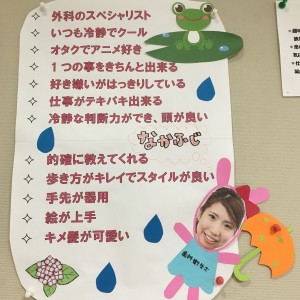 外科のスペシャリスト
いつも冷静でクール
オタクでアニメ好き
1つの事をきちんと出来る
好き嫌いがはっきりしている
仕事がテキパキ出来る
冷静な判断力ができ、頭が良い
なかふじ
的確に教えてくれる
歩き方がキレイでスタイルが良い
手先が器用
絵が上手
キメ髪が可愛い